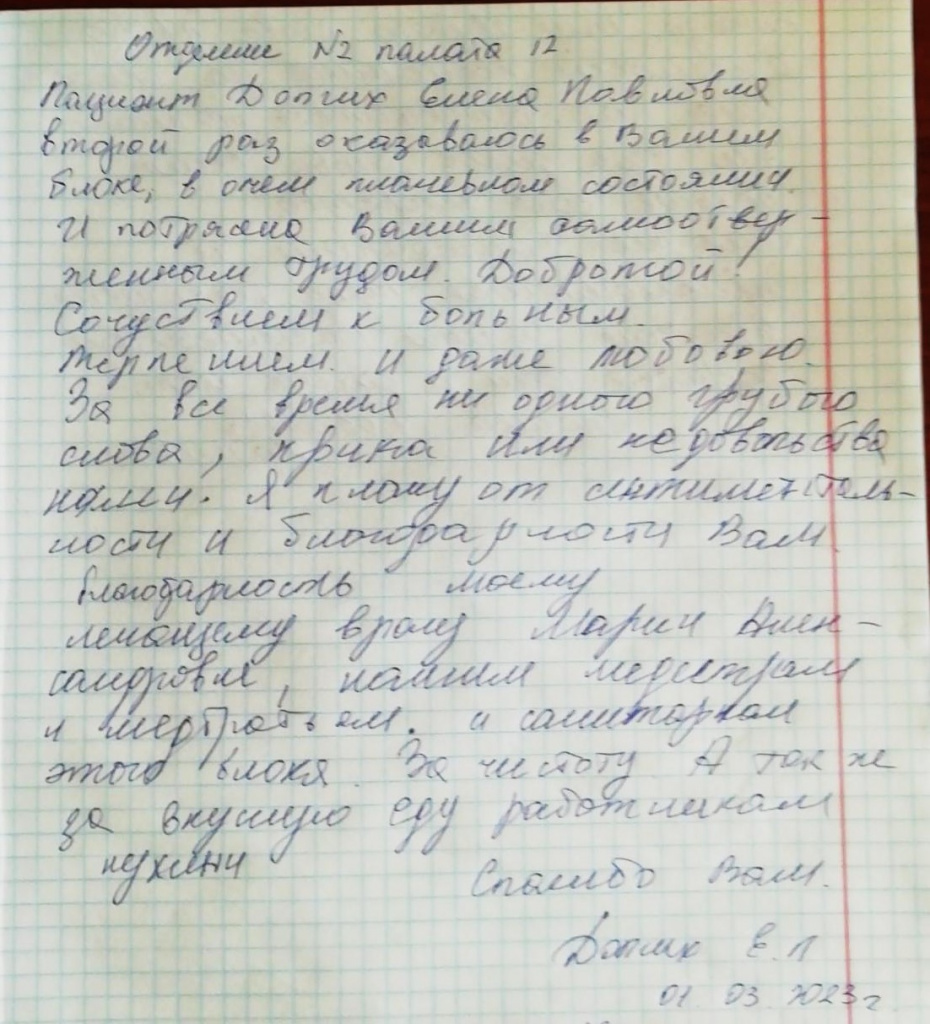 Отделение №2 палата 12
Пациент Долгих Елена Павловна
второй раз оказываюсь в Вашем
блоке, в очем плачевном состоянии.
И потрясена Вашим самоотвер-
женным трудом. Добротой!
Сочуствием к больным.
Терпением. и даже любовью.
За все время ни одного грубого
слова, крика или недовольства
нами. Я плачу от сентиментель-
ности и благодарности Вам.
Благодарность моему
лечащему врачу Марии Алек-
сандровне, нашим медсетрам
и медбратьям. и санитаркам
этого блока. За чистоту. А так же
за вкусную еду работникам
кухени
Спасибо Вам.
Долгих Е.П
01 03 2023г